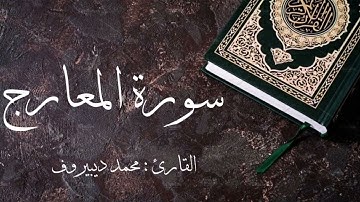 سورة المعارج
القارئ : محمد ديبيروف